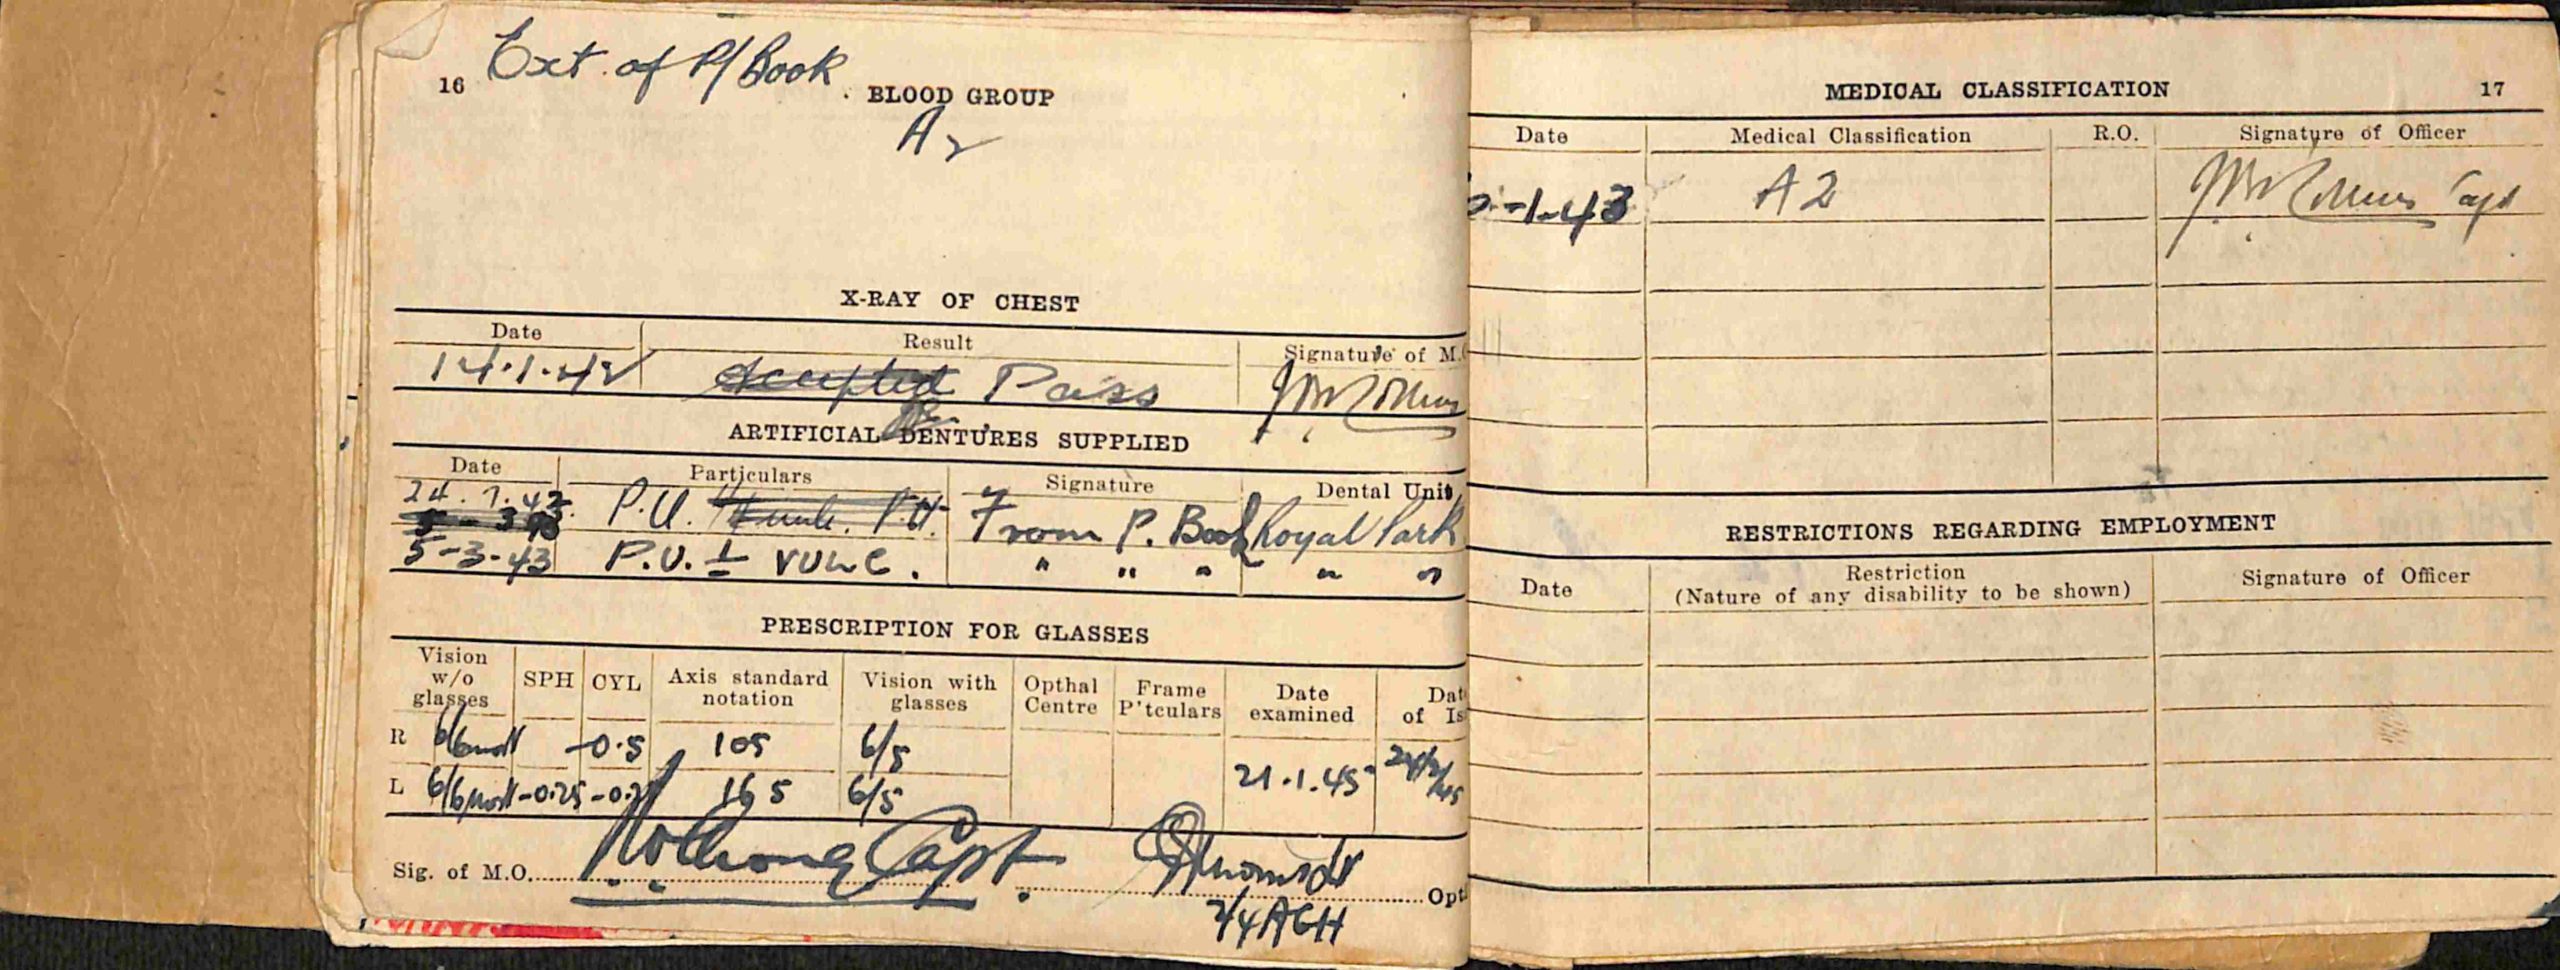 16 Ext. of P/Book
BLOOD GROUP
A2
X-RAY OF CHEST
Date Result Signature of M.
14.1.42 Accepted Pass
ARTIFICIAL DENTURES SUPPLIED
Date Particulars Signature Dental Unit
24.7.42. P.U. From P. Book Royal Park
5-3-43 P.U. 1 VULC. " " " " "
PRESCRIPTION FOR GLASSES
Vision w/o glasses SPH CYL Axis standard notation Vision with glasses Opthal Centre Frame P'tculars Date examined Dat of Is
R 6/6 -0.5 105 6/5
21.1.45
L 6/6 -0.25 165 6/5
Sig. of M.O. Capt Opt
2/4 AGH
MEDICAL CLASSIFICATION 17
Date Medical Classification R.O. Signature of Officer
-1-43 A2 Capt
RESTRICTIONS REGARDING EMPLOYMENT
Date Restriction Signature of Officer
(Nature of any disability to be shown)